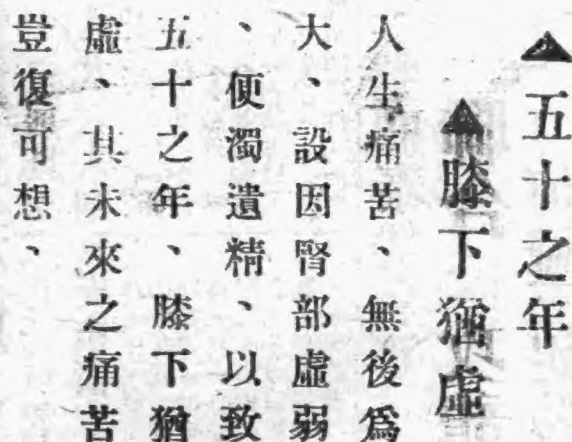 ▲五十之年
▲膝下猶虛
人生痛苦、無後爲
大、設因腎部虛弱
、便濁遺精、以致
五十之年、膝下猶
虛、其未來之痛苦
豈復可想、